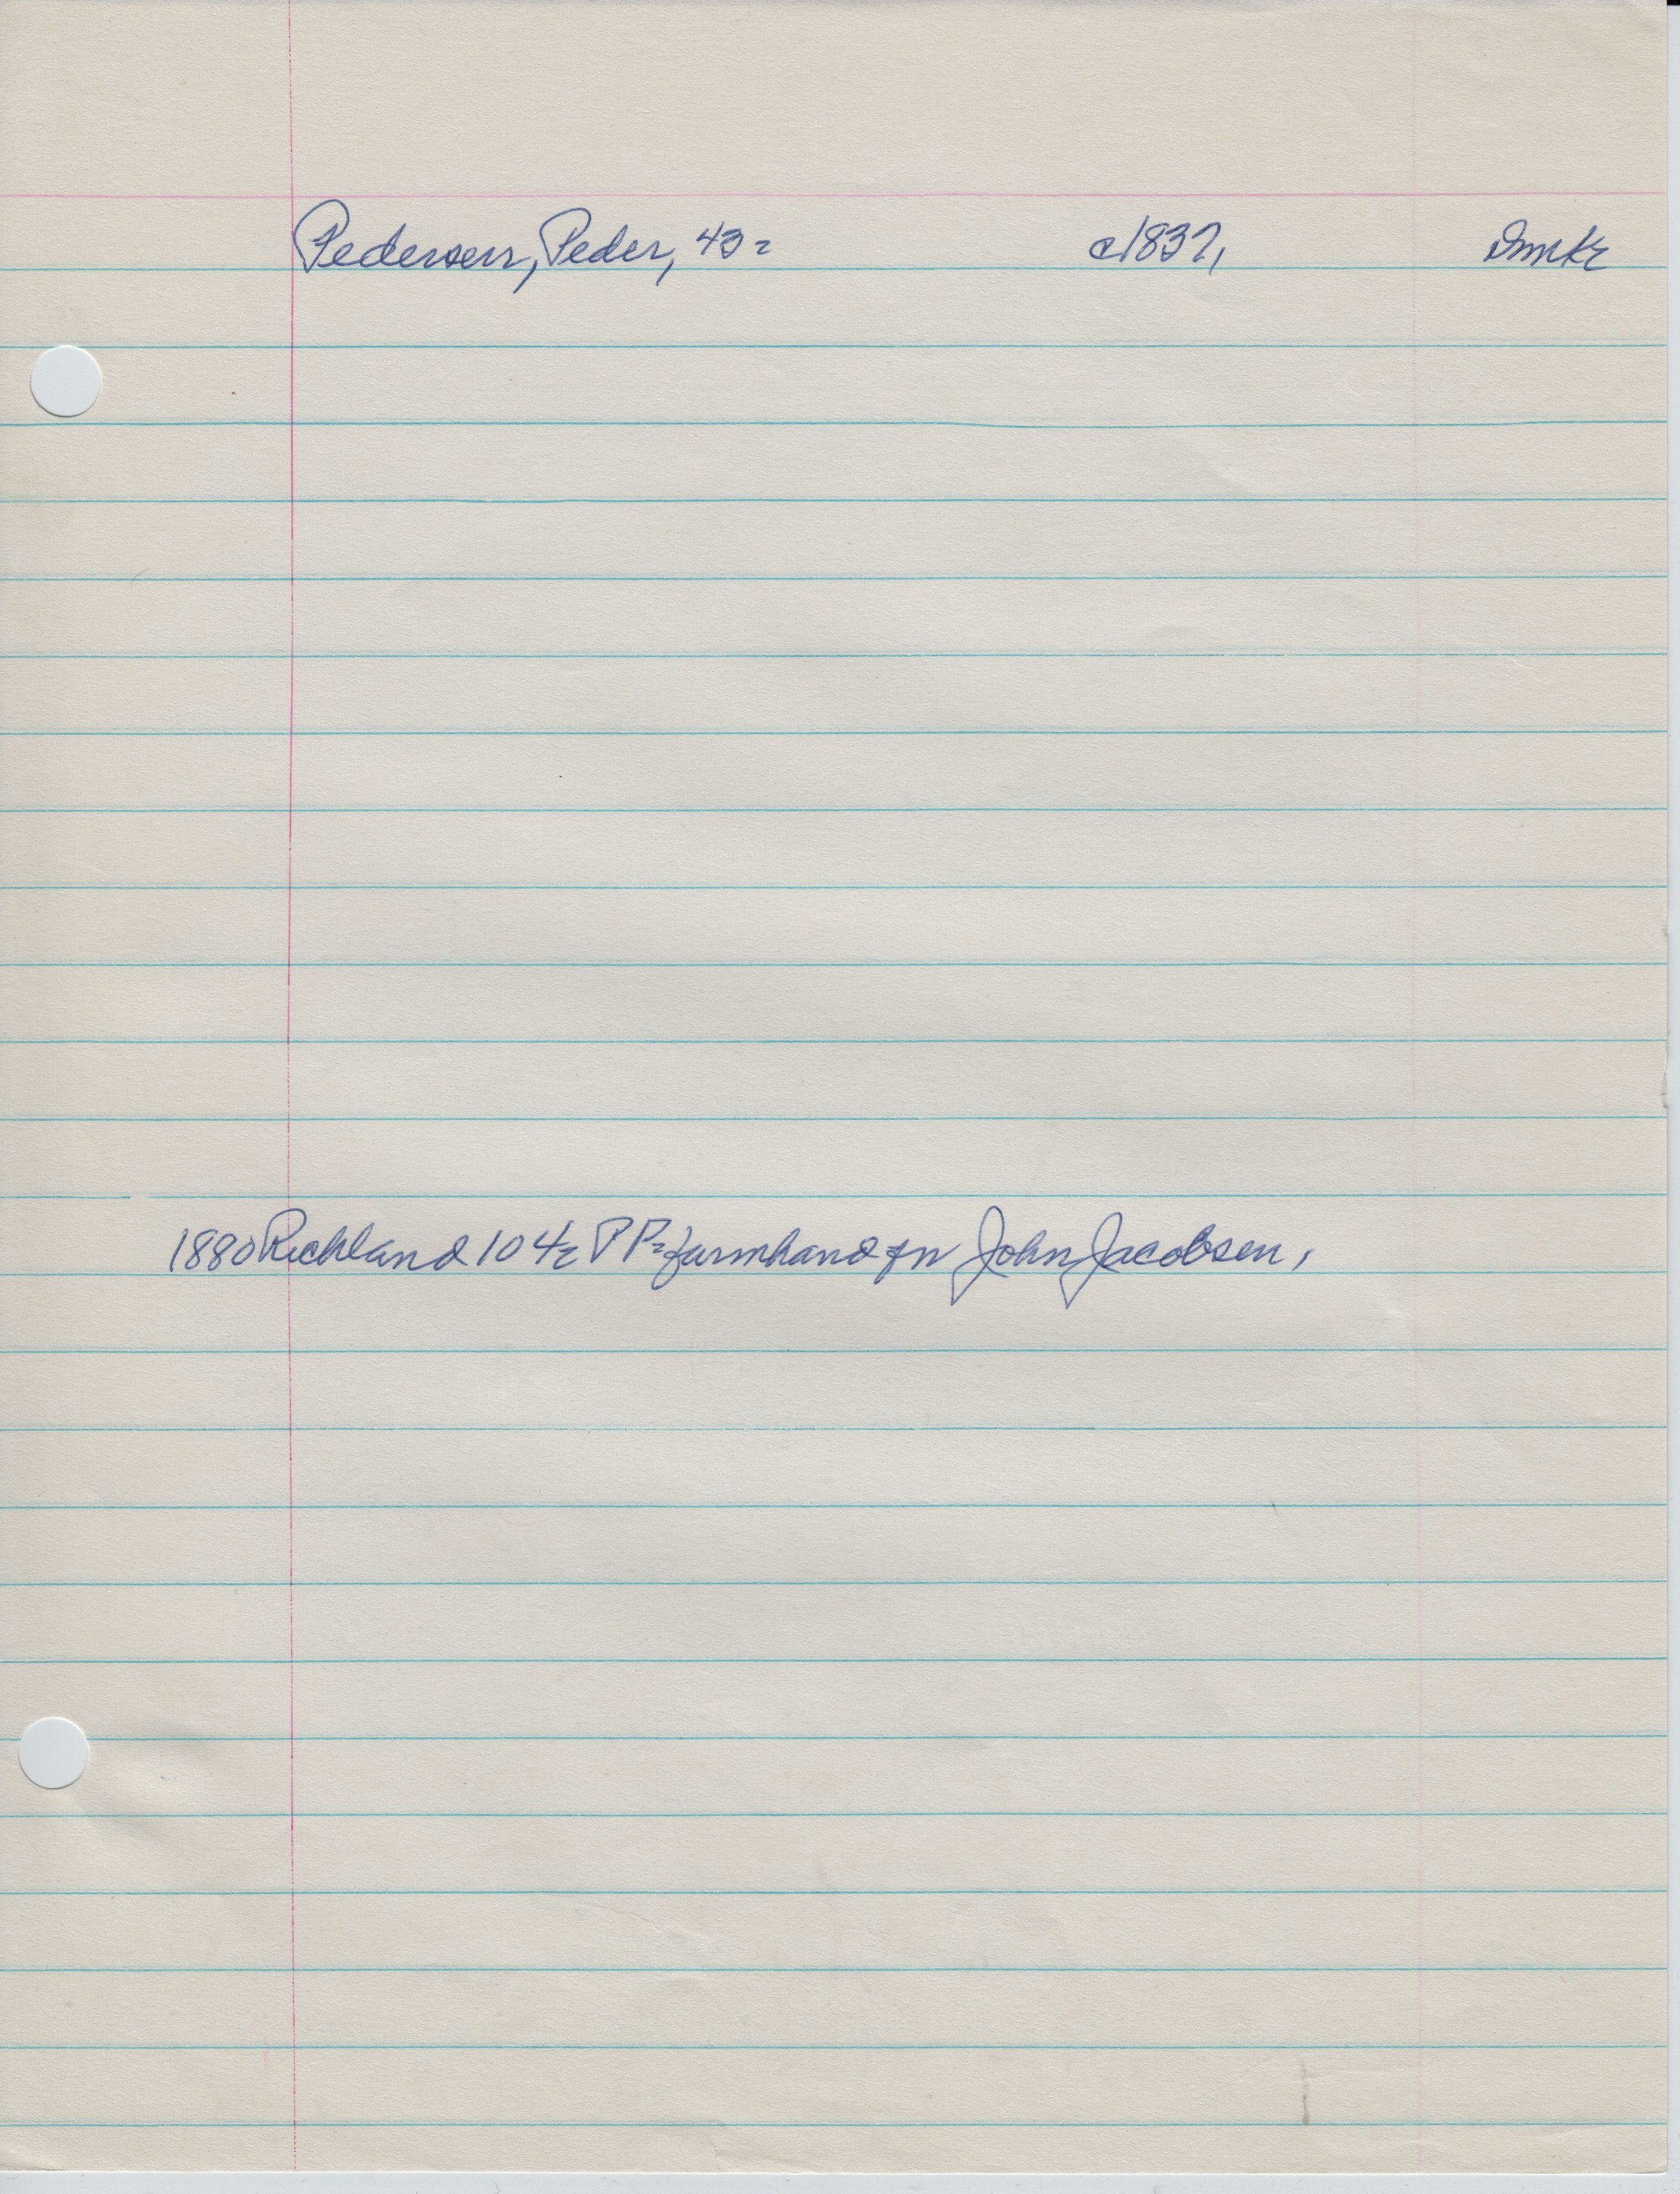 Pedersen, Peder, 43= c1837, Dmk
1880 Richland 10 4/2 PP=farmhand fn John Jacobsen,